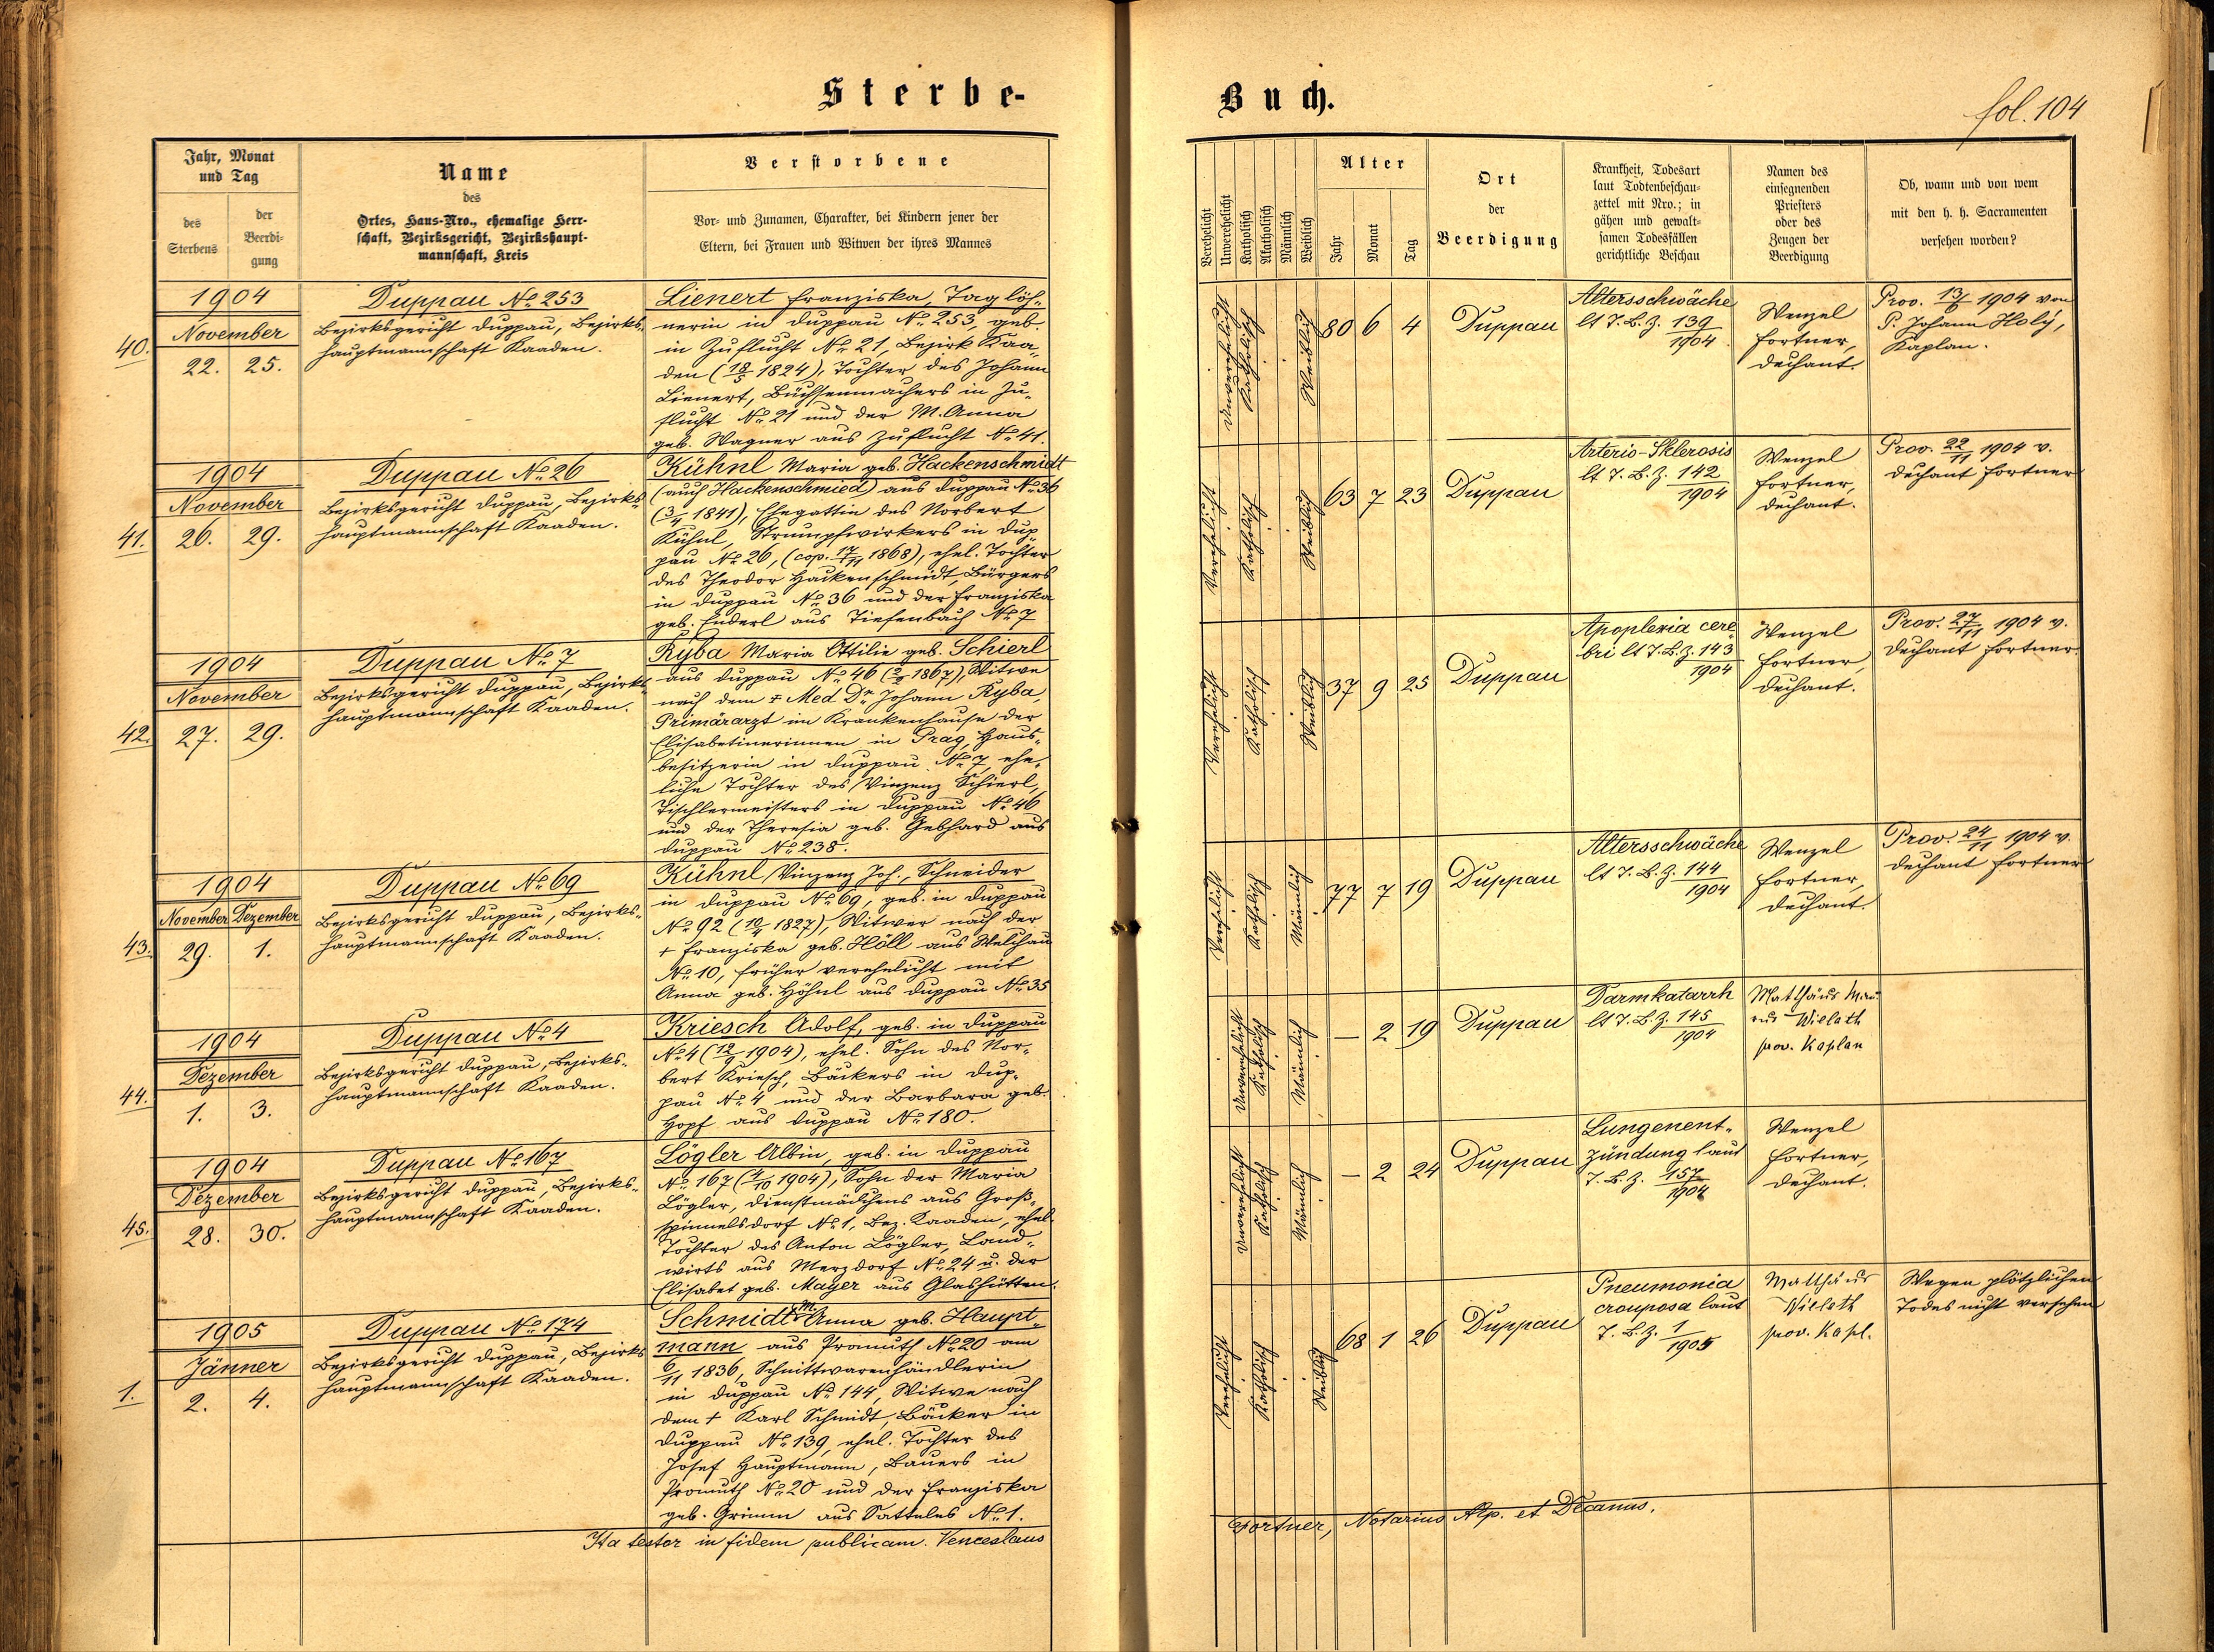 Sterbe-
Buch.
fol. 104
Jahr, Monat
und Tag
des
Sterbens
der
Beerdi-
gung
Name
des
Ortes, Haus-Nro., ehemalige Herr-
schaft, Bezirksgericht, Bezirkshaupt-
mannschaft, Kreis
Verstorbene
Vor- und Zunamen, Charakter, bei Kindern jener der
Eltern, bei Frauen und Witwen der ihres Mannes
Verehelicht
Unverehelicht
Katholisch
Akatholisch
Männlich
Weiblich
Alter
Jahr
Monat
Tag
Ort
der
Beerdigung
Krankheit, Todesart
laut Todtenbeschau-
zettel mit Nro.; in
gähen und gewalt-
samen Todesfällen
gerichtliche Beschau
Namen des
einsegnenden
Priesters
oder des
Zeugen der
Beerdigung
Ob, wann und von wem
mit den h. h. Sacramenten
versehen worden?
40.
1904
November
22. 25.
Duppau No. 253
Bezirksgericht Duppau, Bezirks-
hauptmannschaft Kaaden.
Lienert Franziska, Taglöh-
nerin in Duppau No. 253, geb.
in Zuflucht No. 21, Bezirk Kaa-
den (18/5 1824), Tochter des Johann
Lienert, Büchsenmachers in Zu-
flucht No. 21 und der M. Anna
geb. Wagner aus Zuflucht No. 41.
Unverehelicht
Katholisch
Weiblich
80 6 4
Duppau
Altersschwäche
lt T. B. Z. 139/1904
Wenzel
Fortner,
Dechant.
Prov. 13/6 1904 von
P. Johann Holý,
Kaplan.
41.
1904
November
26. 29.
Duppau No. 26
Bezirksgericht Duppau, Bezirks-
hauptmannschaft Kaaden.
Kühnl Maria geb. Hackenschmidt
(auch Hackenschmied) aus Duppau No. 36
(3/4 1841), Ehegattin des Norbert
Kühnl, Strumpfwirkers in Dup-
pau No. 26, (cop. 17/11 1868), ehel. Tochter
des Theodor Hackenschmidt, Bürgers
in Duppau No. 36 und der Franziska
geb. Enderl aus Tiefenbach No. 7
Verehelicht
Katholisch
Weiblich
63 7 23
Duppau
Arterio-Sklerosis
lt T. B. Z. 142/1904
Wenzel
Fortner,
Dechant.
Prov. 22/11 1904 v.
Dechant Fortner
42.
1904
November
27. 29.
Duppau No. 7
Bezirksgericht Duppau, Bezirks-
hauptmannschaft Kaaden.
Ryba Maria Ottilie geb. Schierl
aus Duppau No. 46 (2/2 1867), Witwe
nach dem + Med Dr. Johann Ryba,
Primärarzt im Krankenhause der
Elisabetinerinnen in Prag, Haus-
besitzerin in Duppau No. 7, ehe-
liche Tochter des Vinzenz Schierl,
Tischlermeisters in Duppau No. 46
und der Theresia geb. Gebhard aus
Duppau No. 238.
Verehelicht
Katholisch
Weiblich
37 9 25
Duppau
Apoplexia cere-
bri lt T. B. Z. 143/1904
Wenzel
Fortner,
Dechant.
Prov. 27/11 1904 v.
Dechant Fortner.
43.
1904
November Dezember
29. 1.
Duppau No. 69
Bezirksgericht Duppau, Bezirks-
hauptmannschaft Kaaden.
Kühnl Vinzenz Joh., Schneider
in Duppau No. 69, geb. in Duppau
No. 92 (10/4 1827), Witwer nach der
+ Franziska geb. Höll aus Welchau
No. 10, früher verehelicht mit
Anna geb. Höhnl aus Duppau No. 35
Verehelicht
Katholisch
Männlich
77 7 19
Duppau
Altersschwäche
lt T. B. Z. 144/1904
Wenzel
Fortner,
Dechant.
Prov. 24/11 1904 v.
Dechant Fortner
44.
1904
Dezember
1. 3.
Duppau No. 4
Bezirksgericht Duppau, Bezirks-
hauptmannschaft Kaaden.
Kriesch Adolf, geb. in Duppau
No. 4 (12/9 1904), ehel. Sohn des Nor-
bert Kriesch, Bäckers in Dup-
pau No. 4 und der Barbara geb.
Hopf aus Duppau No. 180.
Unverehelicht
Katholisch
Männlich
— 2 19
Duppau
Darmkatarrh
lt T. B. Z. 145/1904
Matthäus
Wielath
prov. Kaplan
45.
1904
Dezember
28. 30.
Duppau No. 167
Bezirksgericht Duppau, Bezirks-
hauptmannschaft Kaaden.
Lögler Albin, geb. in Duppau
No. 167 (4/10 1904), Sohn der Maria
Lögler, Dienstmädchens aus Groß-
spinnelsdorf No. 1, Bez. Kaaden, ehel.
Tochter des Anton Lögler, Land-
wirts aus Merzdorf No. 24 u. der
Elisabet geb. Mayer aus Glashütten.
Unverehelicht
Katholisch
Männlich
— 2 24
Duppau
Lungenent-
zündung laut
T. B. Z. 157/1904
Wenzel
Fortner,
Dechant.
1.
1905
Jänner
2. 4.
Duppau No. 174
Bezirksgericht Duppau, Bezirks-
hauptmannschaft Kaaden.
Schmidt M. Anna geb. Haupt-
mann aus Promuth No. 20 am
6/11 1836, Schnittwarenhändlerin
in Duppau No. 144, Witwe nach
dem + Karl Schmidt, Bäcker in
Duppau No. 139, ehel. Tochter des
Josef Hauptmann, Bauers in
Promuth No. 20 und der Franziska
geb. Grimm aus Satteles No. 1.
Verehelicht
Katholisch
Weiblich
68 1 26
Duppau
Pneumonia
crouposa laut
T. B. Z. 1/1905
Matthäus
Wielath
prov. Kapl.
Wegen plötzlichen
Todes nicht versehen
Ita testor in fidem publicam. Venceslaus
Fortner, Notarius Ap. et Decanus.